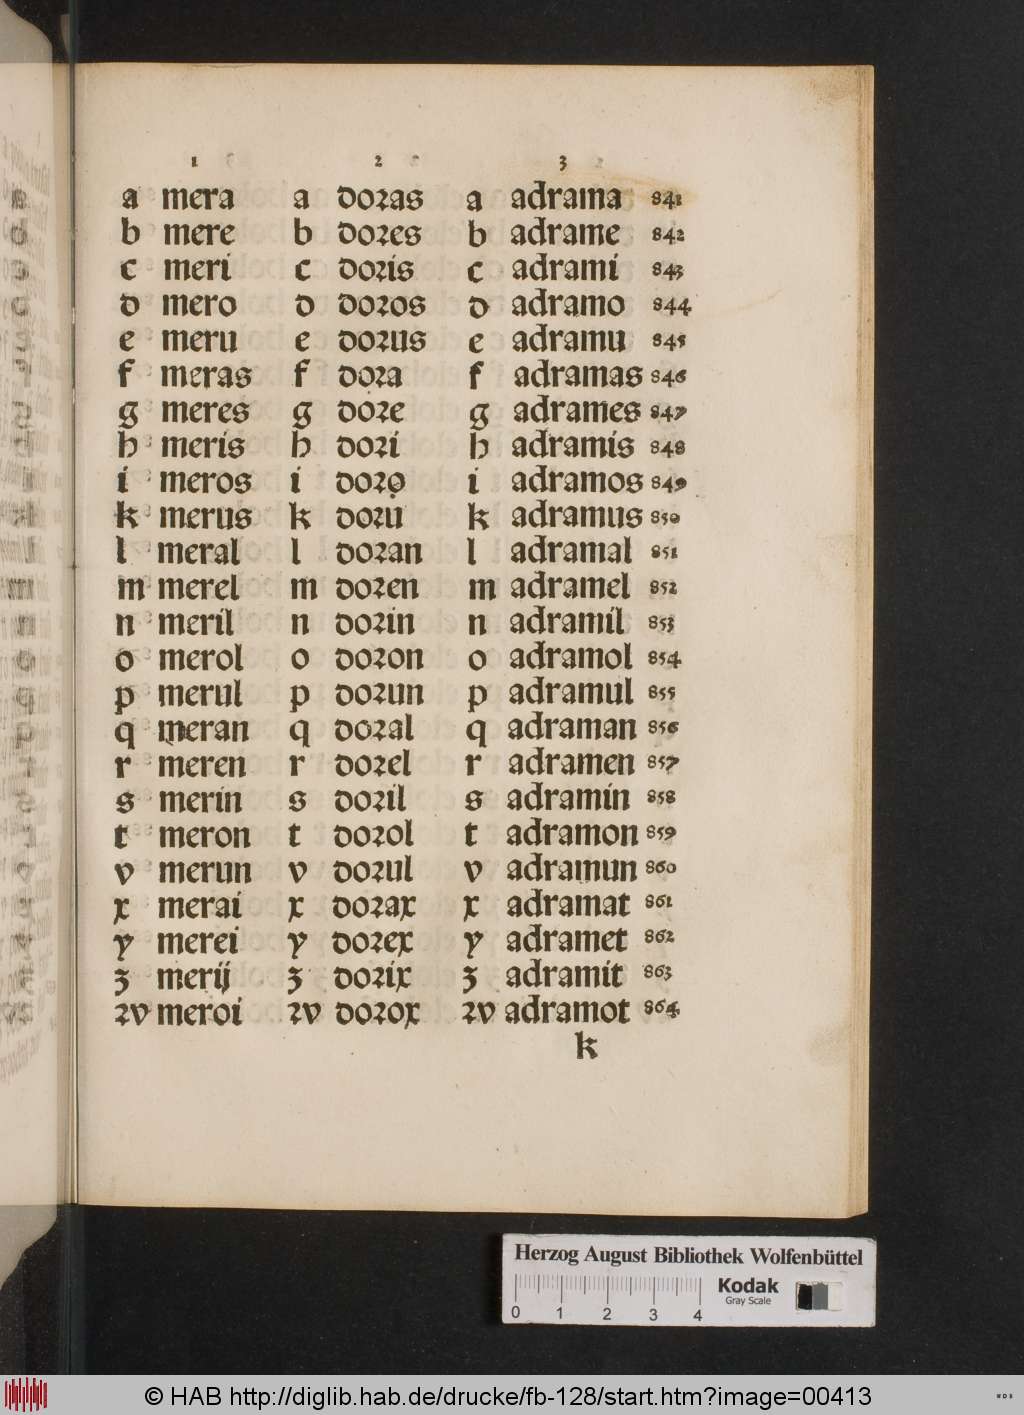 1 2 3
a mera a doras a adrama 841
b mere b dores b adrame 842
c meri c doris c adrami 843
d mero d doros d adramo 844
e meru e dorus e adramu 845
f meras f dora f adramas 846
g meres g dore g adrames 847
h meris h dori h adramis 848
i meros i doro i adramos 849
k merus k doru k adramus 850
l meral l doran l adramal 851
m merel m doren m adramel 852
n meril n dorin n adramil 853
o merol o doron o adramol 854
p merul p dorun p adramul 855
q meran q doral q adraman 856
r meren r dorel r adramen 857
s merin s doril s adramin 858
t meron t dorol t adramon 859
v merun v dorul v adramun 860
x merai x dorax x adramat 861
y merei y dorex y adramet 862
z merij z dorix z adramit 863
ꝛv meroi ꝛv dorox ꝛv adramot 864
k
Herzog August Bibliothek Wolfenbüttel
Kodak
Gray Scale
0 1 2 3 4
© HAB http://diglib.hab.de/drucke/fb-128/start.htm?image=00413